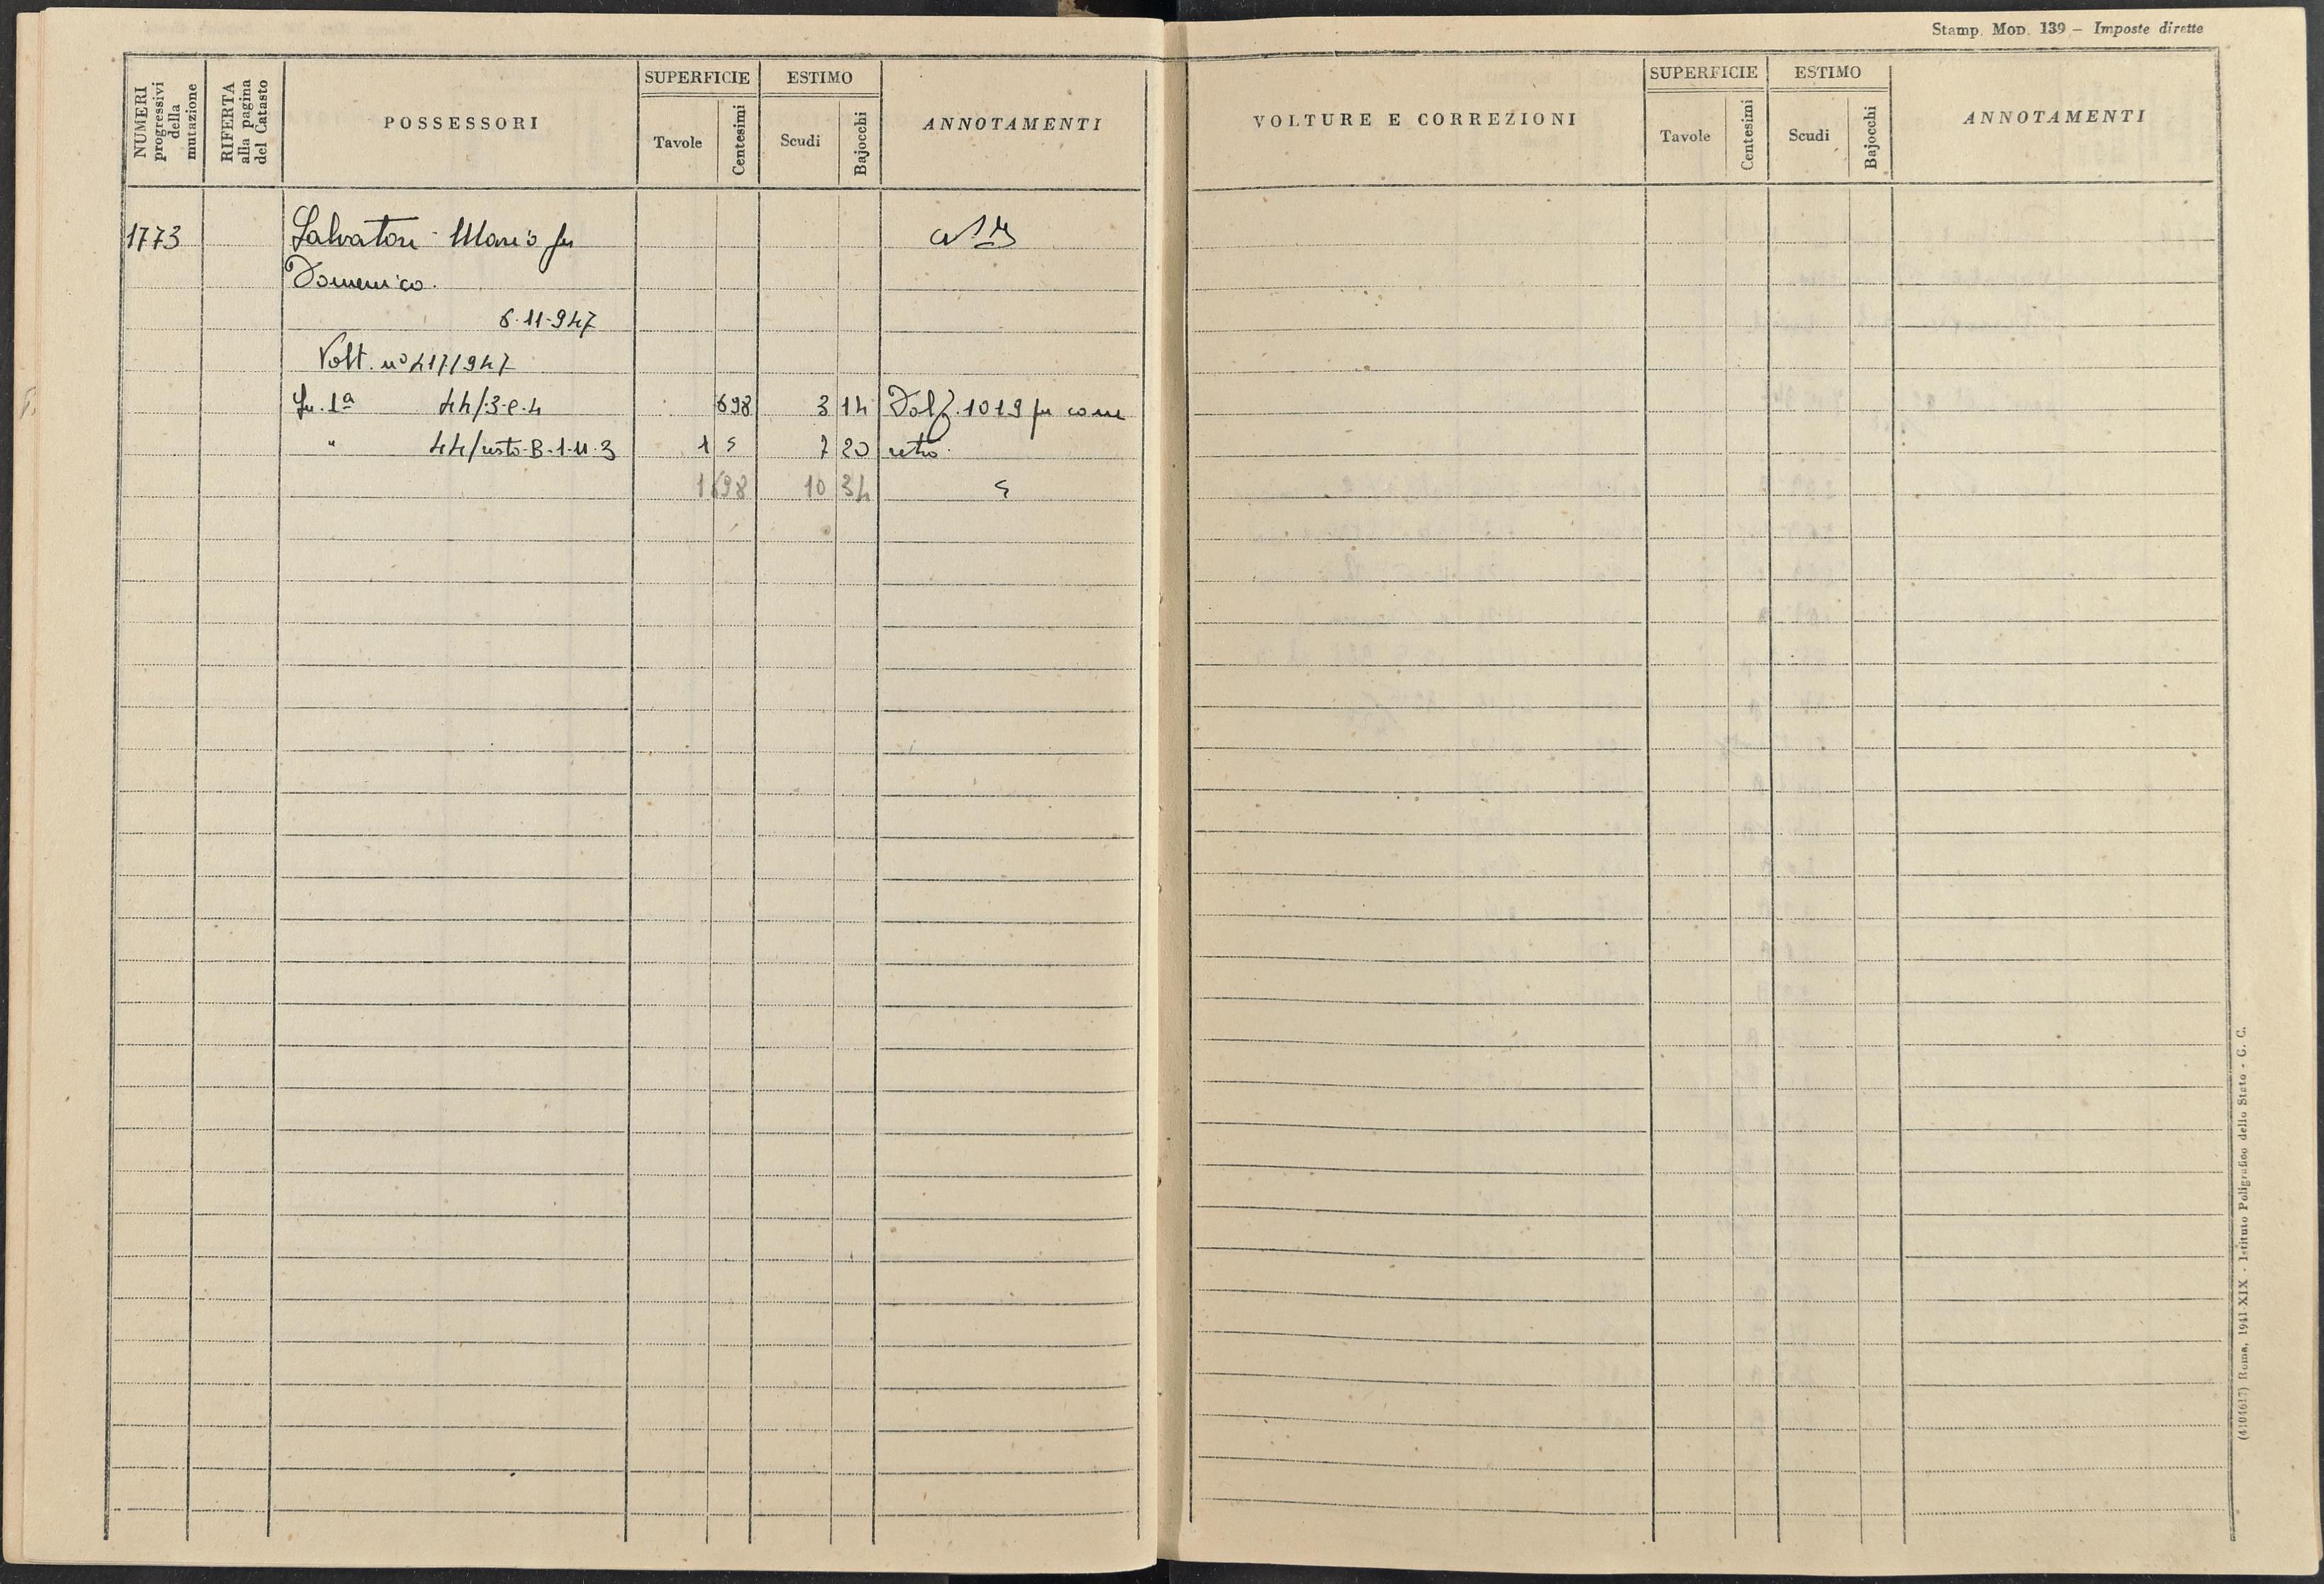 Stamp. Mod. 139 – Imposte dirette
NUMERI progressivi della mutazione
RIFERTA alla pagina del Catasto
POSSESSORI
SUPERFICIE
Tavole Centesimi
ESTIMO
Scudi Bajocchi
ANNOTAMENTI
1773 Salvatori Mario fu
Domenico.
6-11-947
Volt. nº 417/947
44/3-e-4 698 3 14 Dal f. 1019 per come
" 44/resto-B-1-11-3 1 7 20 retro.
1 698 10 34
VOLTURE E CORREZIONI
SUPERFICIE
Tavole Centesimi
ESTIMO
Scudi Bajocchi
ANNOTAMENTI
Roma, 1941 XIX - Istituto Poligrafico dello Stato - G. C.